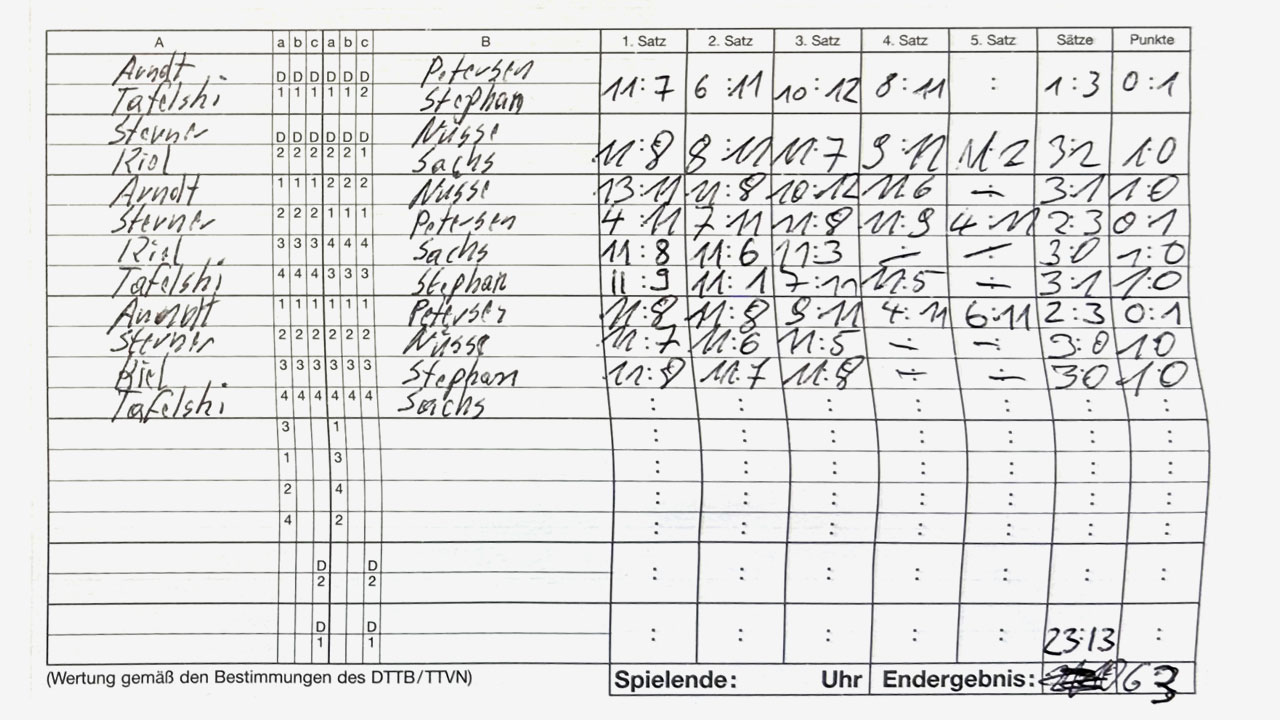 A a b c a b c B 1. Satz 2. Satz 3. Satz 4. Satz 5. Satz Sätze Punkte
Arndt D D D D D D Petersen
Tafelski 1 1 1 1 1 2 Stephan 11:7 6:11 10:12 8:11 : 1:3 0:1
Sterner D D D D D D Nüsse
Kiel 2 2 2 2 2 1 Sachs 11:8 8:11 11:7 9:11 11:2 3:2 1:0
Arndt 1 1 1 2 2 2 Nüsse 13:11 11:8 10:12 11:6 ÷ 3:1 1:0
Sterner 2 2 2 1 1 1 Petersen 4:11 7:11 11:8 11:9 4:11 2:3 0:1
Kiel 3 3 3 4 4 4 Sachs 11:8 11:6 11:3 ÷ ÷ 3:0 1:0
Tafelski 4 4 4 3 3 3 Stephan 11:9 11:1 7:11 11:5 ÷ 3:1 1:0
Arndt 1 1 1 1 1 1 Petersen 11:8 11:8 9:11 4:11 6:11 2:3 0:1
Sterner 2 2 2 2 2 2 Nüsse 11:7 11:6 11:5 ÷ ÷ 3:0 1:0
Kiel 3 3 3 3 3 3 Stephan 11:8 11:7 11:8 ÷ ÷ 3:0 1:0
Tafelski 4 4 4 4 4 4 Sachs : : : : : : :
3 1 : : : : : : :
1 3 : : : : : : :
2 4 : : : : : : :
4 2 : : : : : : :
D D
2 2 : : : : : : :
D D
1 1 : : : : : 23:13 :
(Wertung gemäß den Bestimmungen des DTTB/TTVN) Spielende: Uhr Endergebnis: 6 3